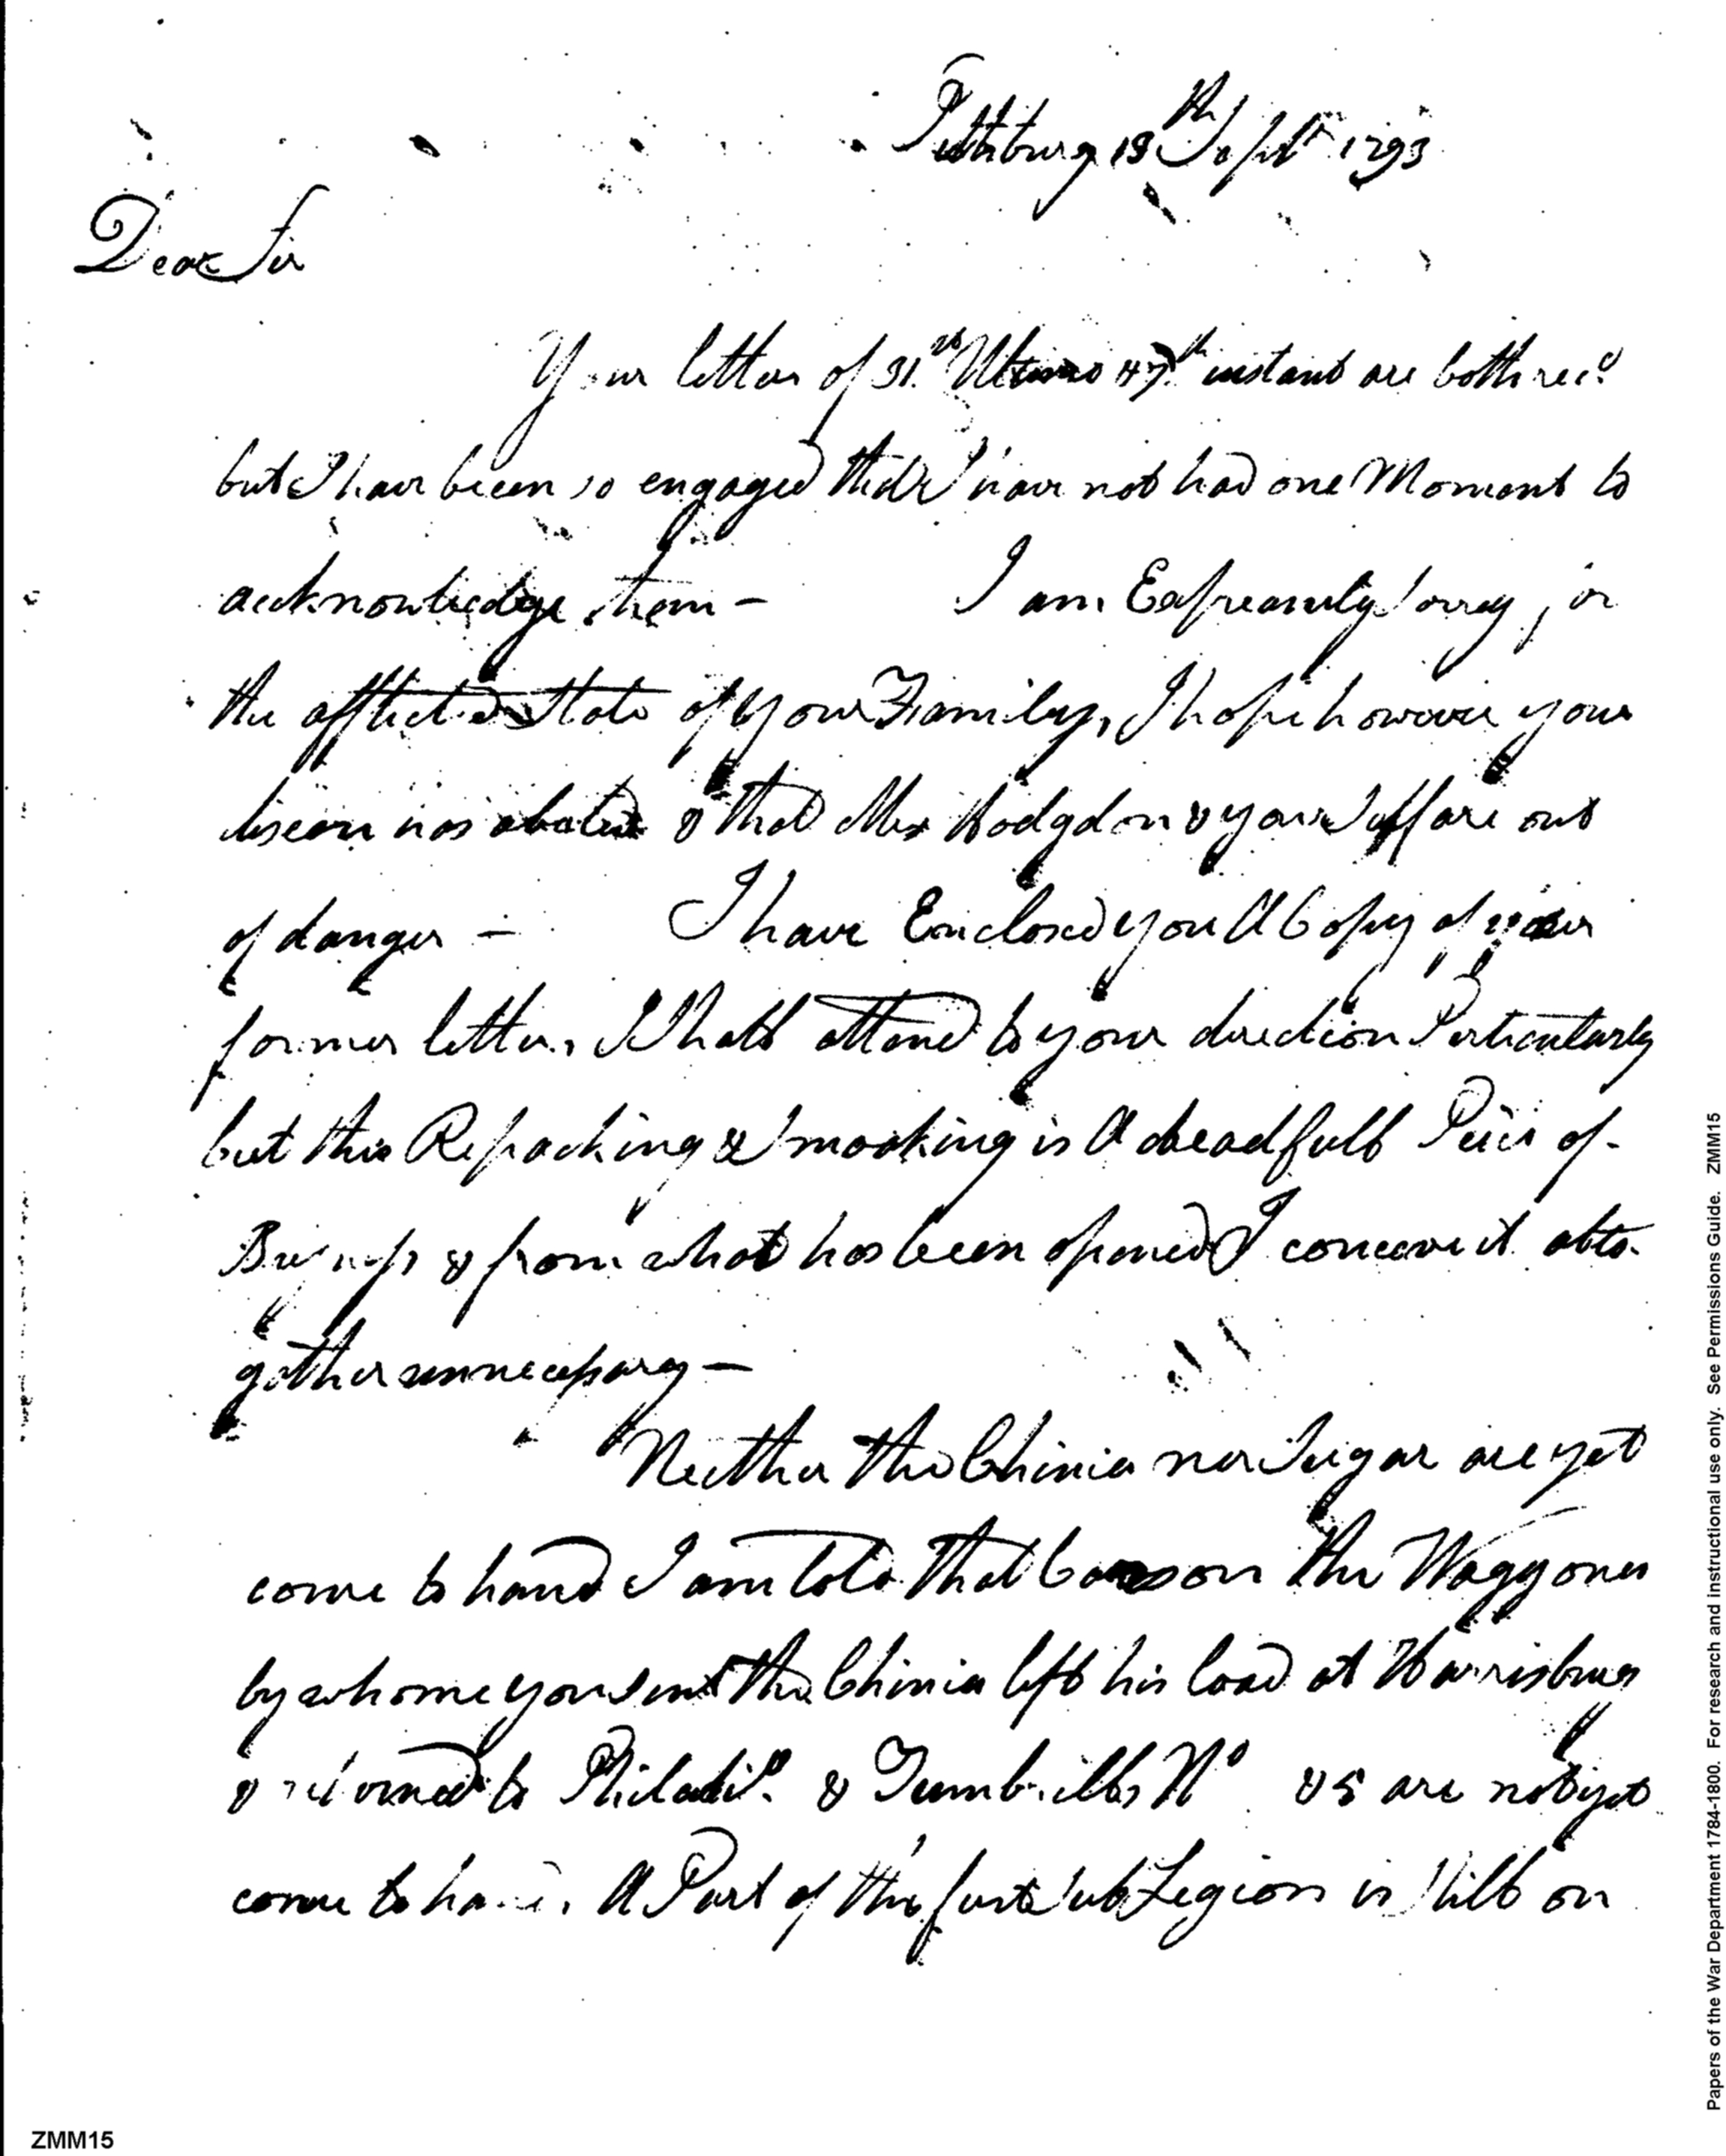 Pittsburg 13th Septr 1793
Dear Sir
Your letters of 31.st Ultimo & 7th instant are both recd
but I have been so engaged that I have not had one Moment to
acknowledge them – I am Expreamly Sorry for
the afflicted State of your Family, I hope however your
has abated & that Mrs Hodgdon & your Self are out
of danger – I have Enclosed you A Copy of your
former letter, I Shall attend to your direction Perticularly
but this Repacking & Smoaking is A dreadfull Peice of
Buisness & from what has been opened I conceive it alto-
gether unnecessary –
Neither the Chinia nor Sugar are yet
come to hand I am told that the Waggoner
by whome you sent the Chinia left his load at Harrisburg
& returned to Philadela & Tumbrills No & 5 are not yet
come to hand. A Part of the first Sub Legion is Still on
Papers of the War Department 1784-1800. For research and instructional use only. See Permissions Guide. ZMM15
ZMM15